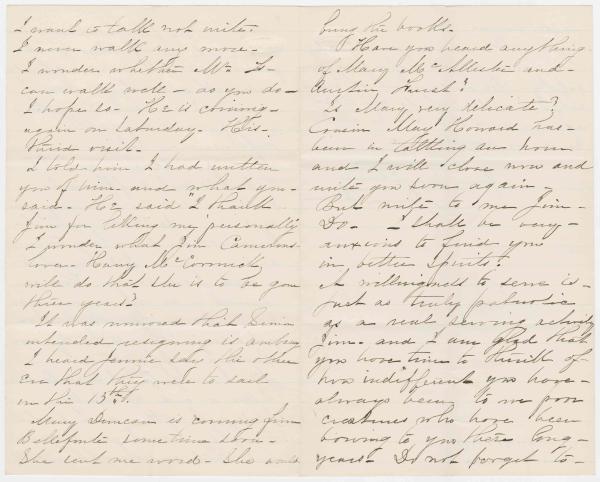 I want to talk not write.
I never walk any more -
I wonder whether Mr. Is-
can walk well - as you do -
I hope so - He is coming -
again on Saturday - His -
third visit -
I told him I had written
you of him - and what you -
said - He said "I thank
Jim for letting me personally
I wonder what Jim Camerons
lover - Harry McCormick
will do that she is to be gone
three years?
It was rumored that Simon
intended resigning is
I heard Jennie say the other
eve that they were to sail
in the 13th.
Mary Duncan is coming from
Bellefonte some time soon -
She sent me word - She
bring the books -
Have you heard anything
of Mary McAllister and -
Austin Hurst?
Is Mary very delicate?
Cousin May Howard has -
been in tattling an hour
and I will close now and
write you soon again -
But write to me Jim -
Do - I shall be very -
anxious to find you
in better spirits!
A willingness to serve is -
just as truly patriotic
as a real serving activity
Jim - and I am glad that
you have time to think of -
how indifferent you have -
always been to we poor
creatures who have been
bowing to you these long -
years - Do not forget to -